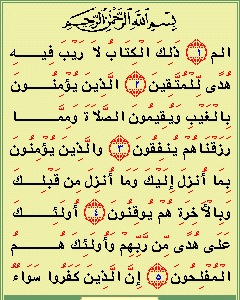 بِسْمِ اللَّهِ الرَّحْمَٰنِ الرَّحِيمِ
الم ﴿١﴾ ذَلِكَ الْكِتَابُ لَا رَيْبَ فِيهِ
هُدًى لِّلْمُتَّقِينَ ﴿٢﴾ الَّذِينَ يُؤْمِنُونَ
بِالْغَيْبِ وَيُقِيمُونَ الصَّلَاةَ وَمِمَّا
رَزَقْنَاهُمْ يُنفِقُونَ ﴿٣﴾ وَالَّذِينَ يُؤْمِنُونَ
بِمَا أُنزِلَ إِلَيْكَ وَمَا أُنزِلَ مِن قَبْلِكَ
وَبِالْآخِرَةِ هُمْ يُوقِنُونَ ﴿٤﴾ أُولَئِكَ
عَلَى هُدًى مِّن رَّبِّهِمْ وَأُولَئِكَ هُمُ
الْمُفْلِحُونَ ﴿٥﴾ إِنَّ الَّذِينَ كَفَرُوا سَوَاءٌ